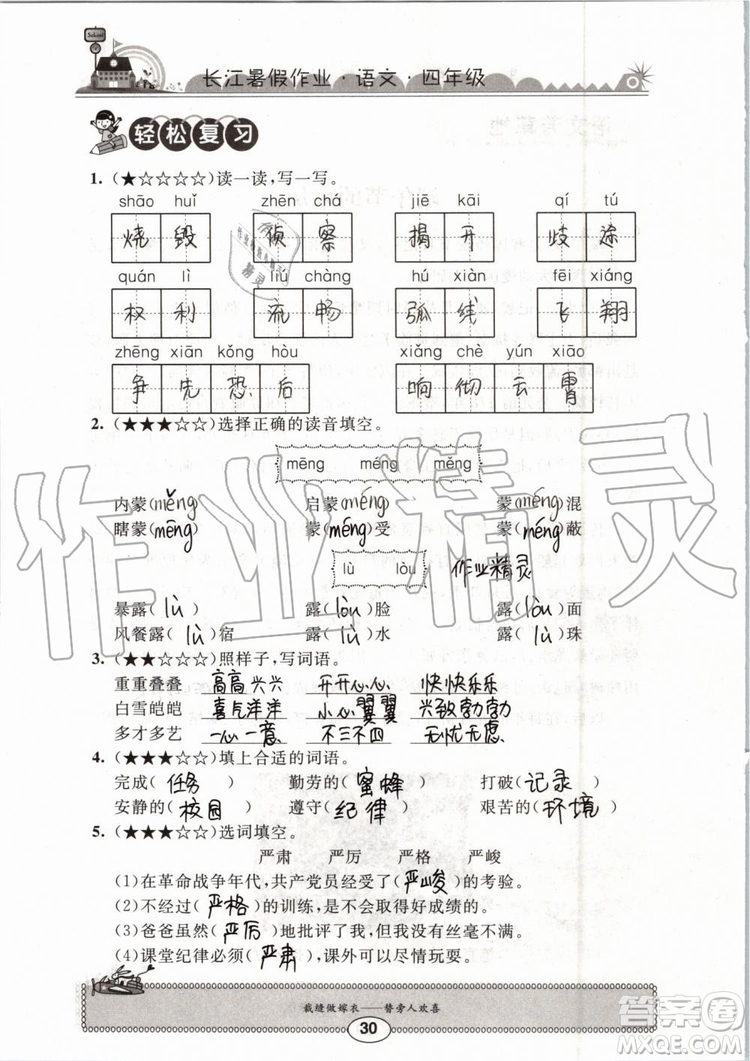 School
长江暑假作业·语文·四年级
轻松复习
1. (★☆☆☆☆)读一读,写一写。
shāo huǐ zhēn chá jiē kāi qí tú
烧毁 侦察 揭开 歧途
quán lì liú chàng hú xiàn fēi xiáng
权利 流畅 弧线 飞翔
zhēng xiān kǒng hòu xiǎng chè yún xiāo
争先恐后 响彻云霄
2. (★★★☆☆)选择正确的读音填空。
mēng méng měng
内蒙(měng) 启蒙(méng) 蒙(méng)混
瞎蒙(mēng) 蒙(méng)受 蒙(méng)蔽
lù lòu 作业精灵
暴露(lù) 露(lòu)脸 露(lòu)面
风餐露(lù)宿 露(lù)水 露(lù)珠
3. (★★☆☆☆)照样子,写词语。
重重叠叠 高高兴兴 开开心心 快快乐乐
白雪皑皑 喜气洋洋 小心翼翼 兴致勃勃
多才多艺 一心一意 不三不四 无忧无虑
4. (★★☆☆☆)填上合适的词语。
完成(任务) 勤劳的(蜜蜂) 打破(记录)
安静的(校园) 遵守(纪律) 艰苦的(环境)
5. (★★★☆☆)选词填空。
严肃 严厉 严格 严峻
(1)在革命战争年代,共产党员经受了(严峻)的考验。
(2)不经过(严格)的训练,是不会取得好成绩的。
(3)爸爸虽然(严厉)地批评了我,但我没有丝毫不满。
(4)课堂纪律必须(严肃),课外可以尽情玩耍。
裁缝做嫁衣——替旁人欢喜
30
作业精灵
答案圈
MXQE.COM